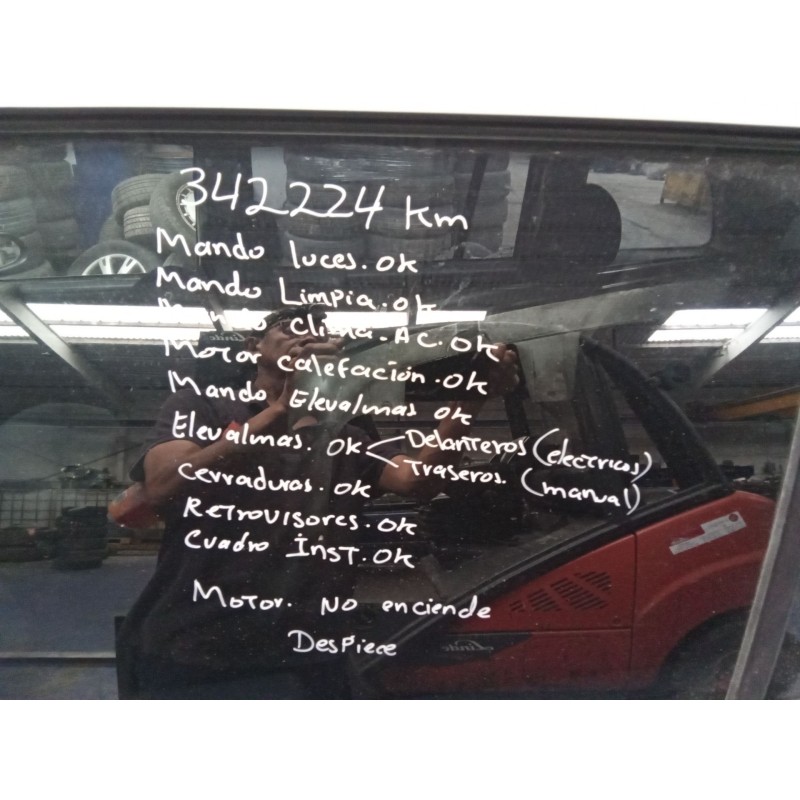 342224 Km
Mando luces. ok
Mando Limpia. ok
Mando clima. AC. ok
Motor calefación. ok
Mando Elevalmas ok
Elevalmas. ok < Delanteros (electricos)
Traseros. (manual)
cerraduras. ok
Retrovisores. ok
Cuadro Inst. ok
Motor. No enciende
Despiece
Linde